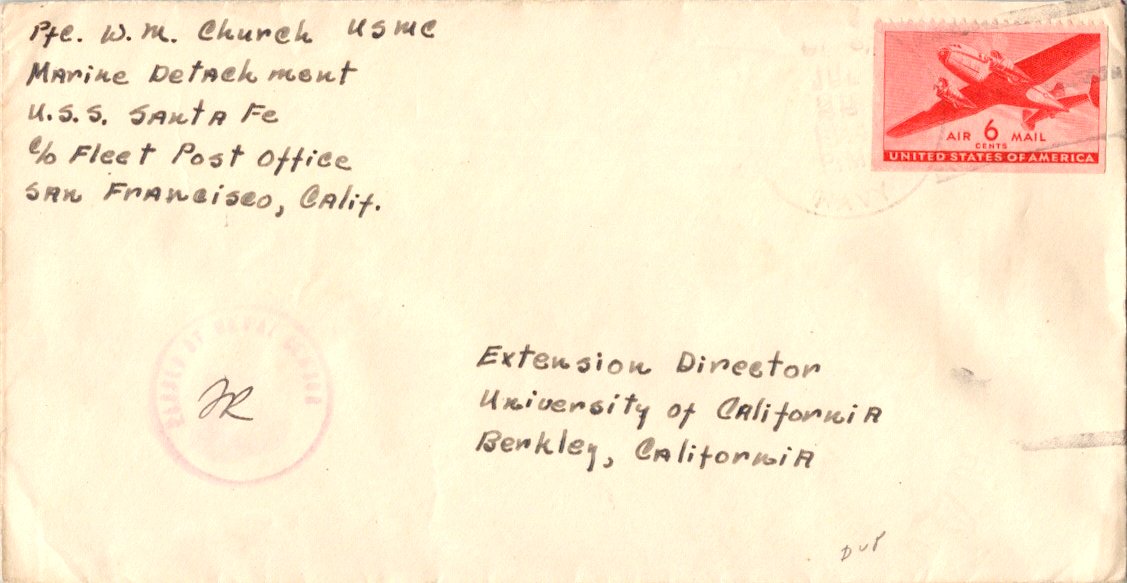 Pfc. W. M. Church USMC
Marine Detachment
U.S.S. Santa Fe
c/o Fleet Post Office
San Francisco, Calif.
AIR 6 MAIL
CENTS
UNITED STATES OF AMERICA
NAVY
PASSED BY NAVAL CENSOR
Extension Director
University of California
Berkley, California
DUP